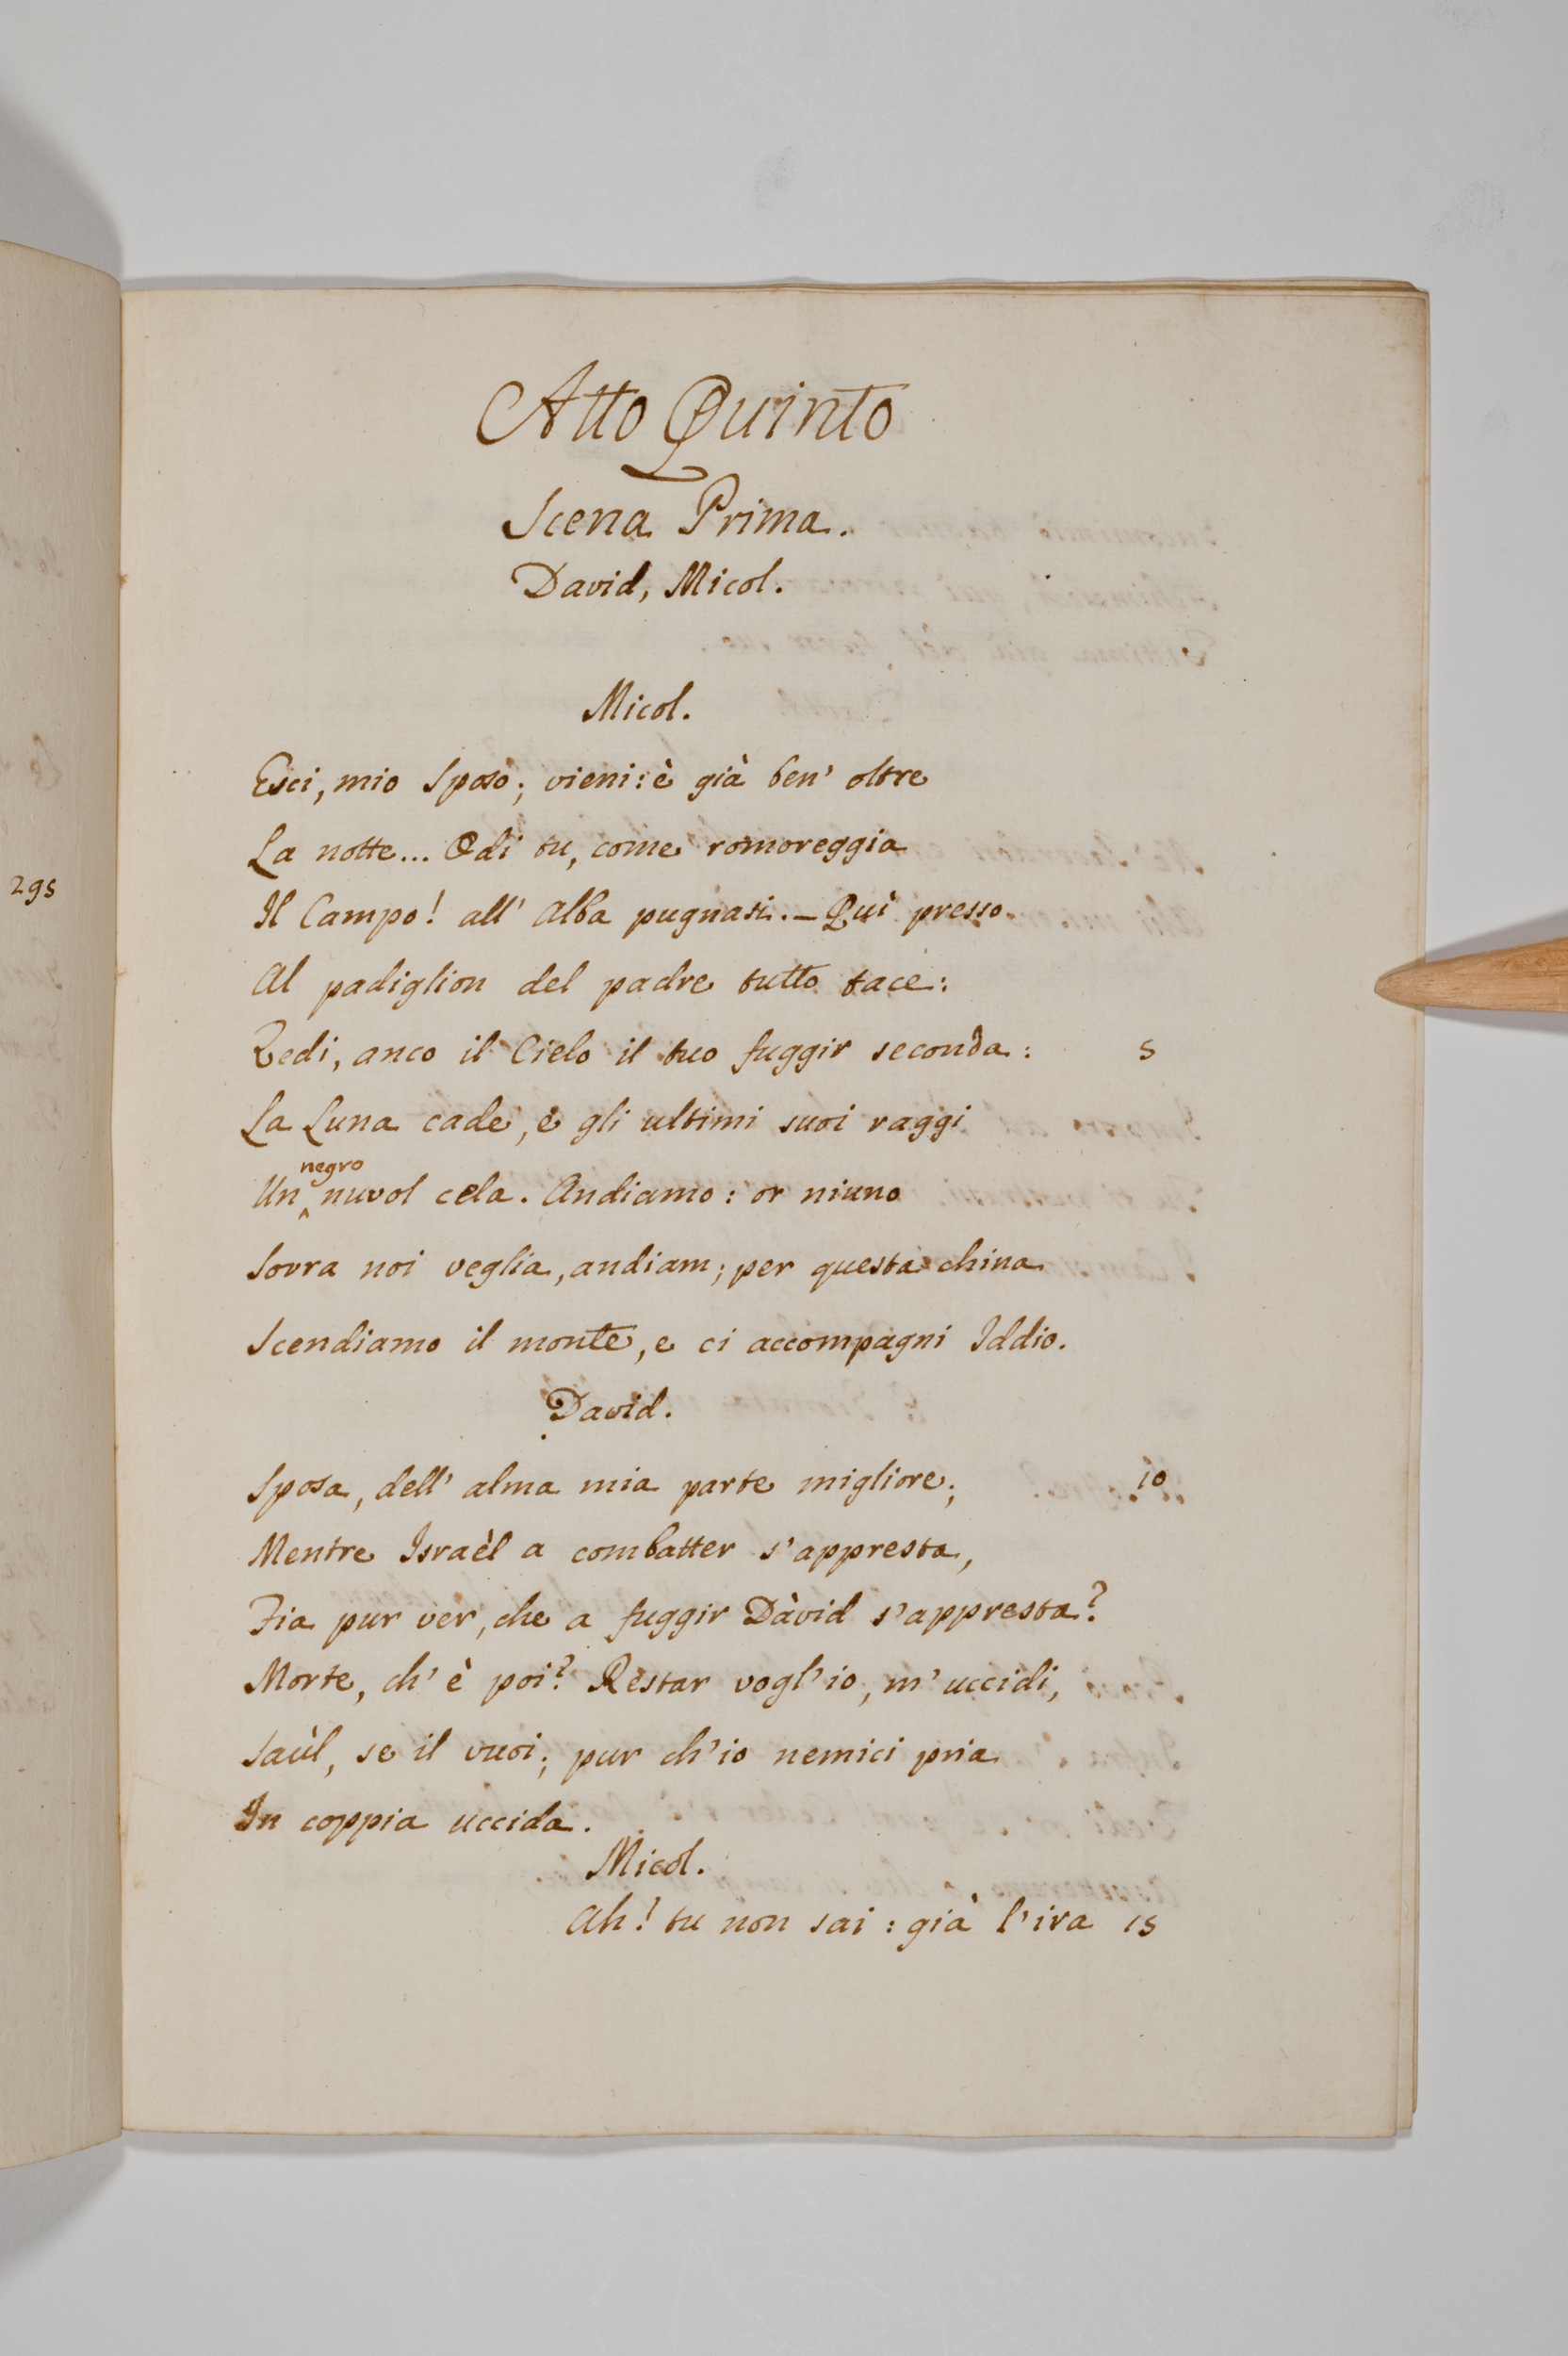 Atto Quinto
Scena Prima.
David, Micol.
Micol.
Esci, mio Sposo; vieni: è già ben' oltre
La notte... Odi tu, come romoreggia
295
Il Campo! all' Alba pugnasi.— Quì presso
Al padiglion del padre tutto tace:
Vedi, anco il Cielo il tuo fuggir seconda: 5
La Luna cade, e gli ultimi suoi raggi
negro
Un nuvol cela. Andiamo: or niuno
Sovra noi veglia, andiam; per questa china
Scendiamo il monte, e ci accompagni Iddio.
David.
Sposa, dell' alma mia parte migliore; 10
Mentre Israèl a combatter s'appresta,
Fia pur ver, che a fuggir Dàvid s'appresta?
Morte, ch' è poi? Restar vogl'io, m'uccidi,
Saùl, se il vuoi; pur ch'io nemici pria
In coppia uccida.
Micol.
Ah! tu non sai: già l'ira 15